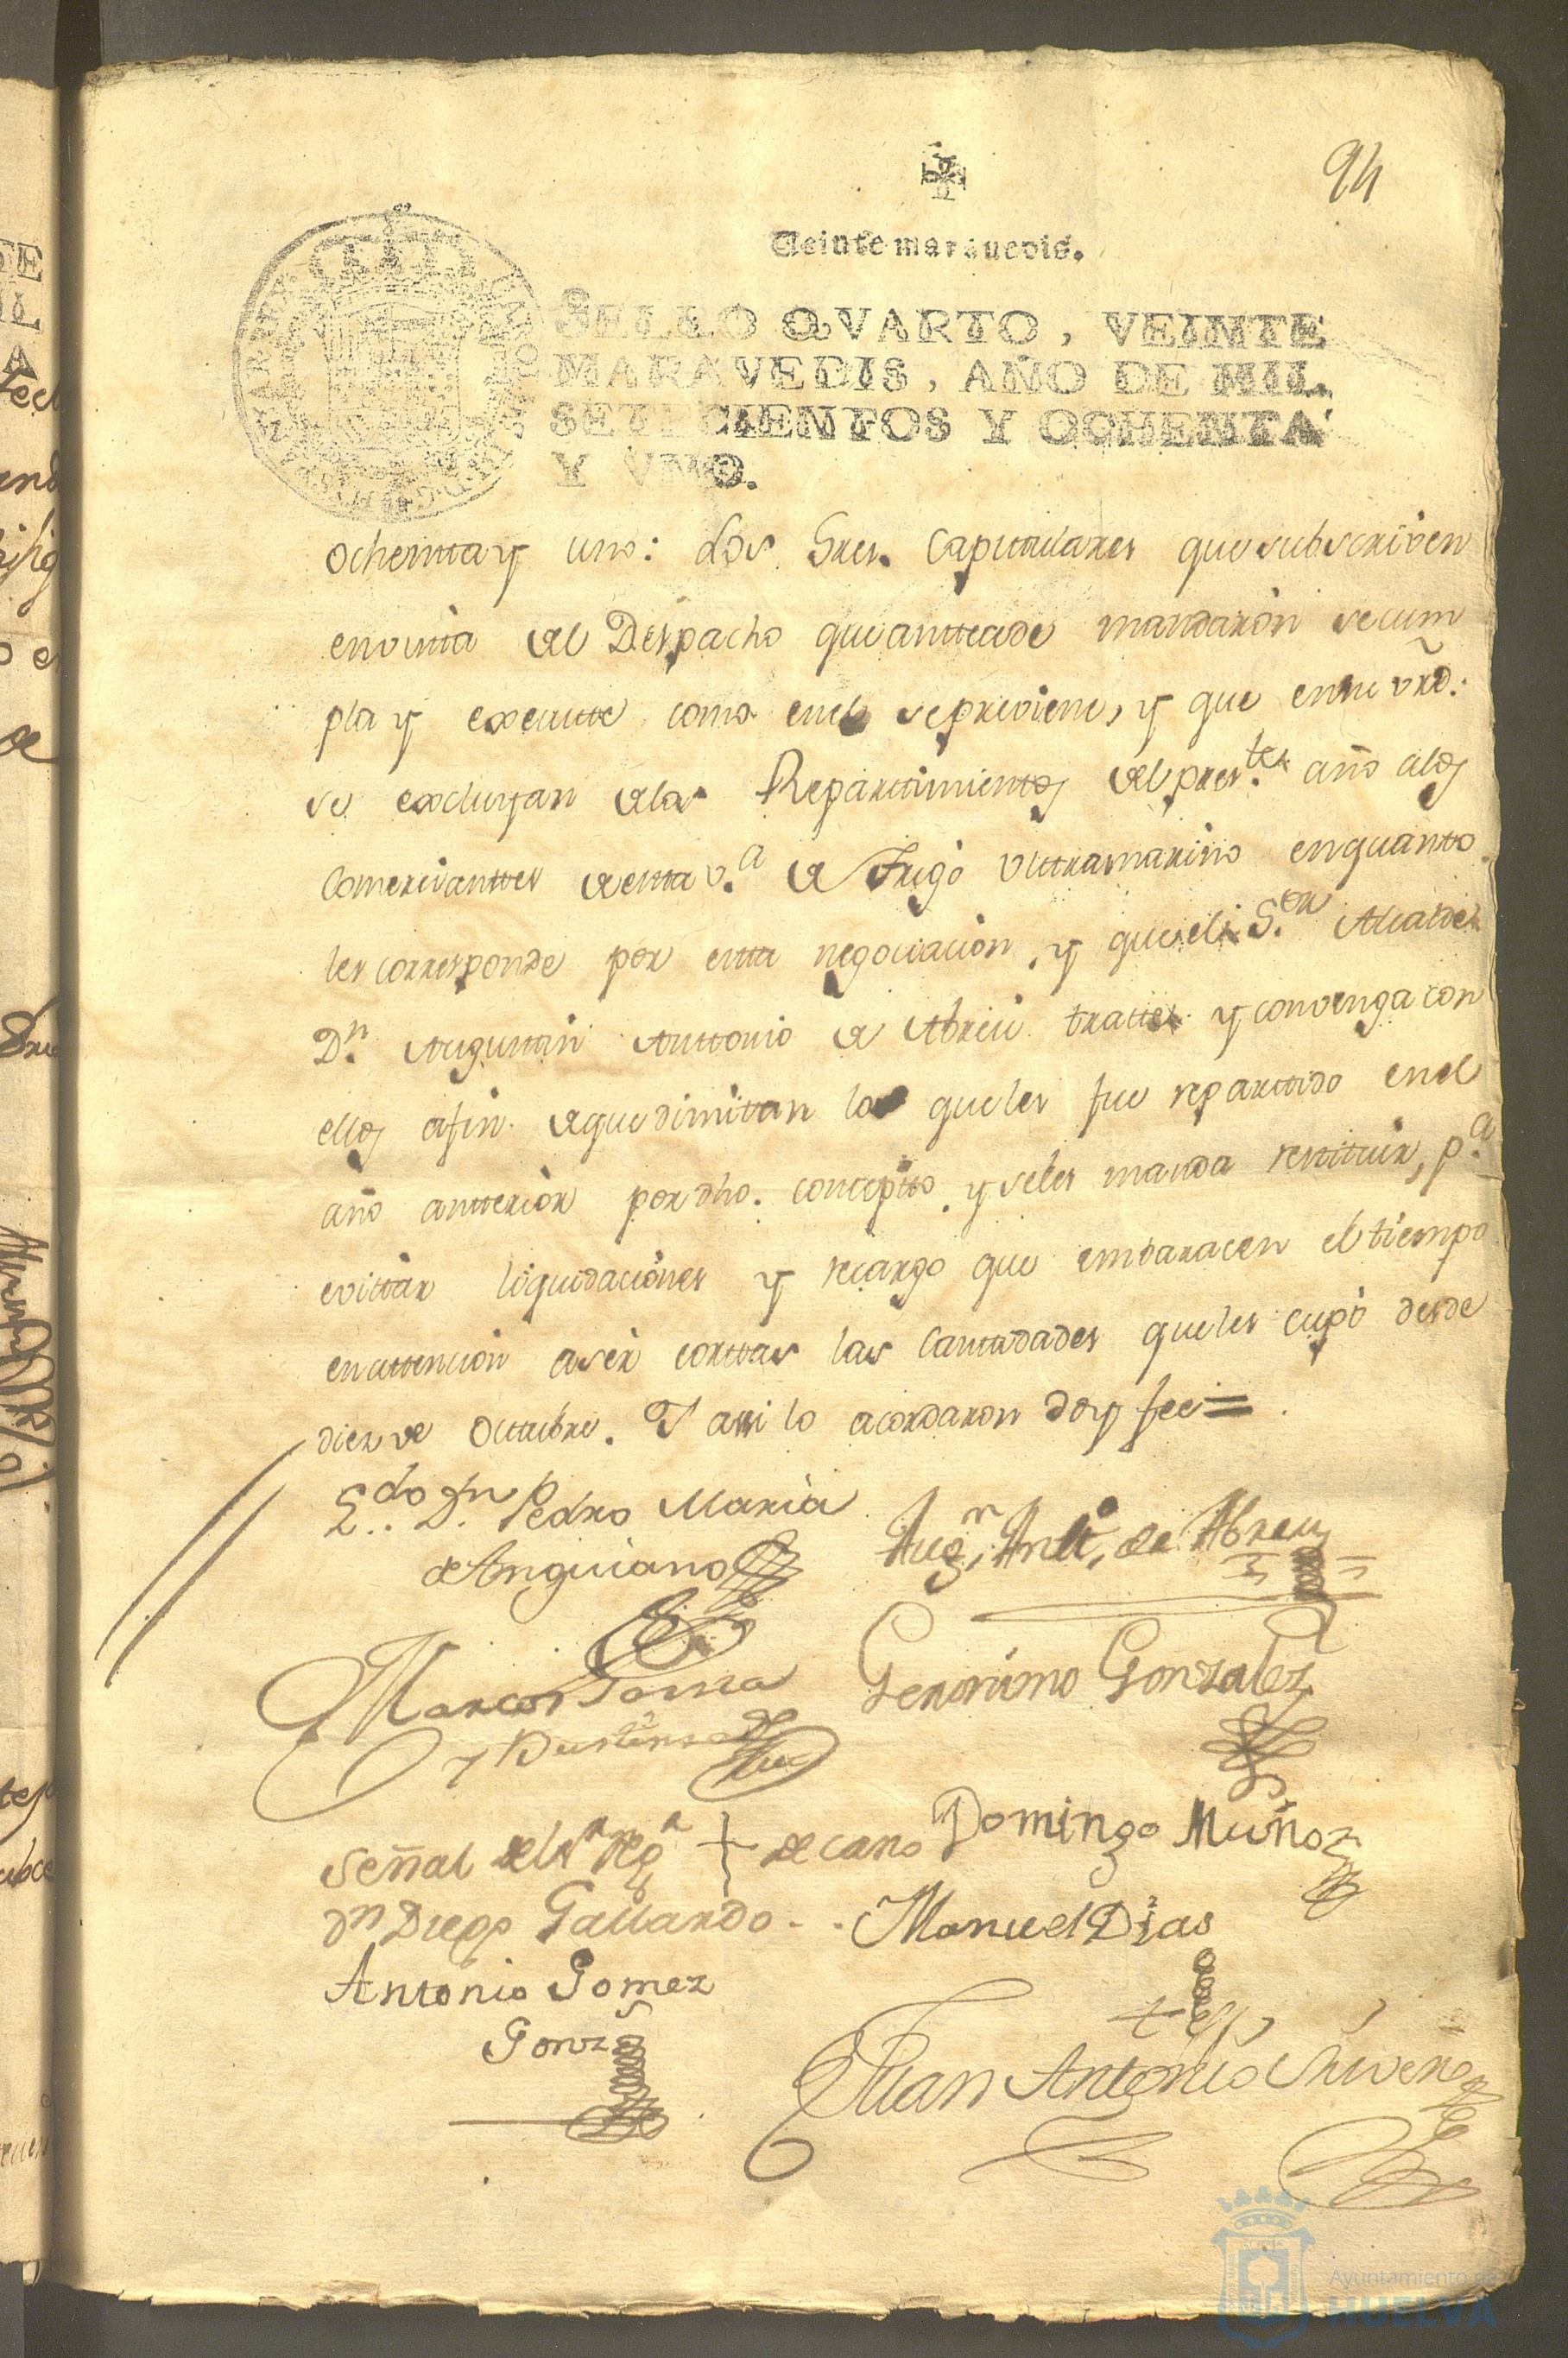 94
Veinte maravedis.
SELLO QVARTO, VEINTE
MARAVEDIS, AÑO DE MIL
SETECIENTOS Y OCHENTA
Y VNO.
ochentta y uno: Los Sres. Capitulares que subscriven
en vista del Despacho que antteade mandaròn se cum
pla y executte como en el se previene, y que en su vrd.
se excluyan de los Reparttimientos del pres.te año a los
Comercianttes de esta v.a de Trigo Ulttramarino en quantto
les corresponde por esta negociacion, y que el S.or Alcalde
D.n Augustin Anttonio de Abreu tratte y convenga con
ellos a fin de que dimitan lo que les fue reparttido en el
año antterior por dho. concepto y se les manda restituir, p.a
evittar liquidaciones y recargo que embaracen el tiempo
en attencion a ser corttas las Cantidades que les cupò desde
diez de Octtubre. Y assi lo acordaron doy fee=
L.do D.n Pedro Maria
de Anguiano
Aug.n Ant.o de Abreu
Marcos
y
Geronimo Gonzalez
Señal del + decano
Domingo Muñoz
Dn Diego Gallardo
Manuel Dias
Antonio Gomez
Gonz
Juan Antonio
Ayuntamiento de
HUELVA